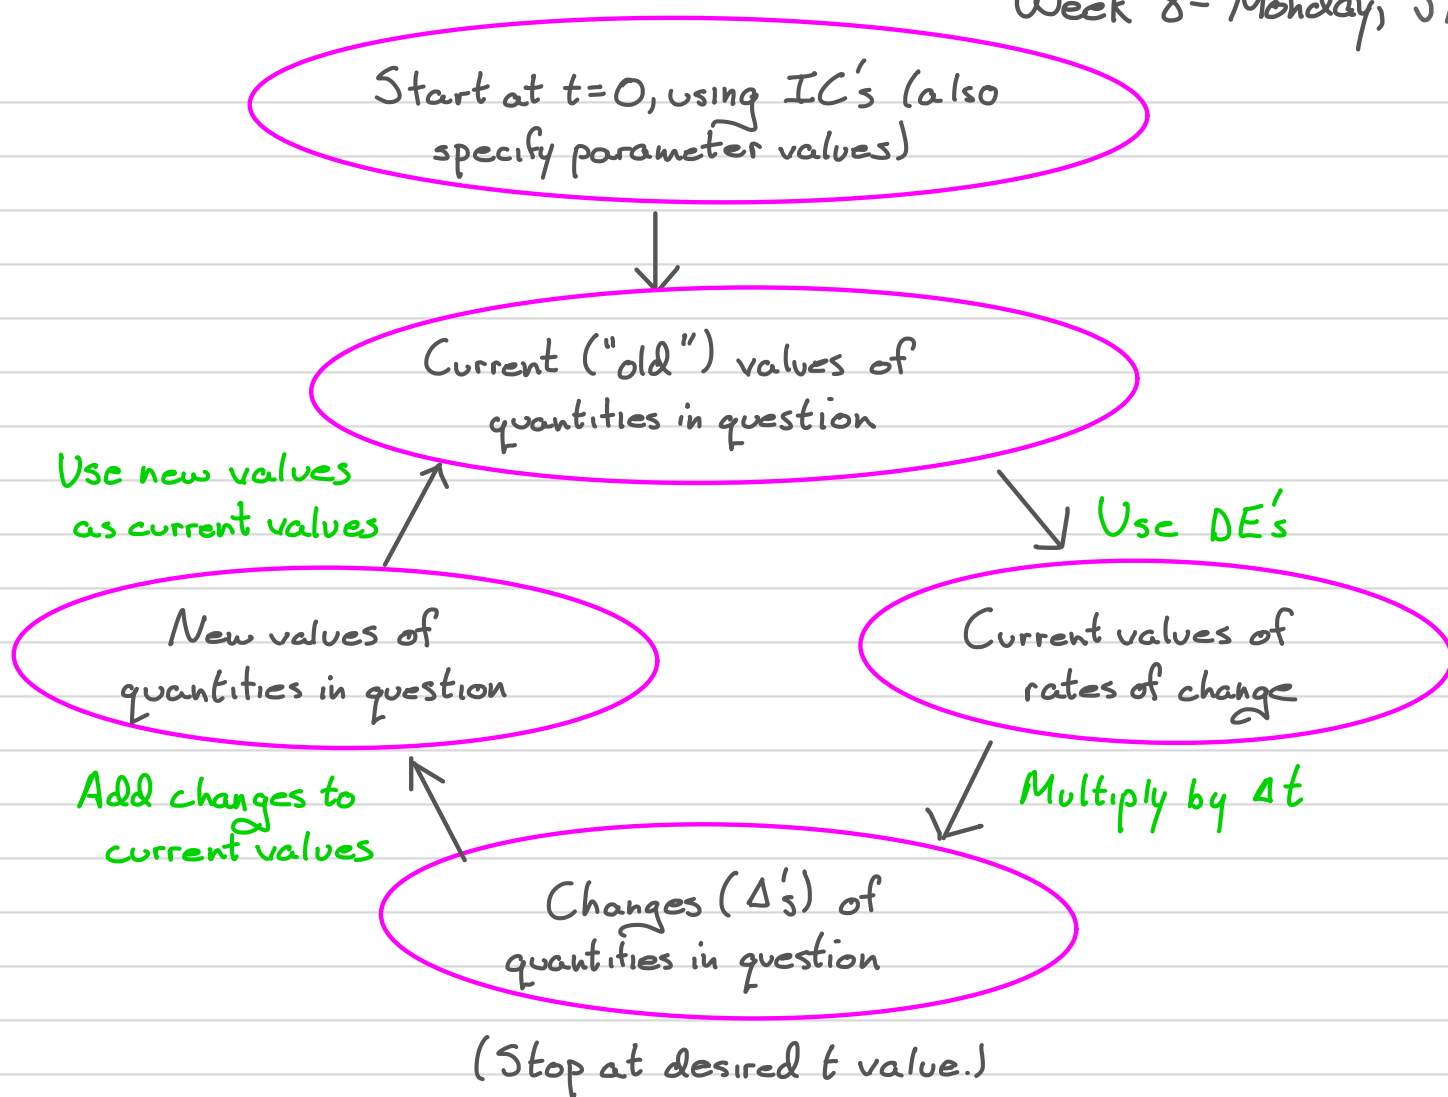 Week 8- Monday,
Start at t=0, using IC's (also
specify parameter values)
Current ("old") values of
quantities in question
Use new values
as current values
Use DE's
New values of
quantities in question
Current values of
rates of change
Add changes to
current values
Multiply by Δt
Changes (Δ's) of
quantities in question
(Stop at desired t value.)